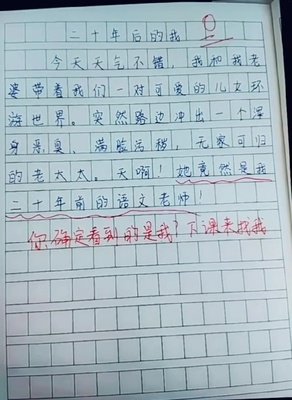 二十年后的我
0
今天天气不错，我和我老
婆带着我们一对可爱的儿女环
游世界。突然路边冲出一个浑
身恶臭、满脸沾秽，无家可归
的老太太。天啊！她竟然是我
二十年前的语文老师！
你确定看到的是我？下课来找我